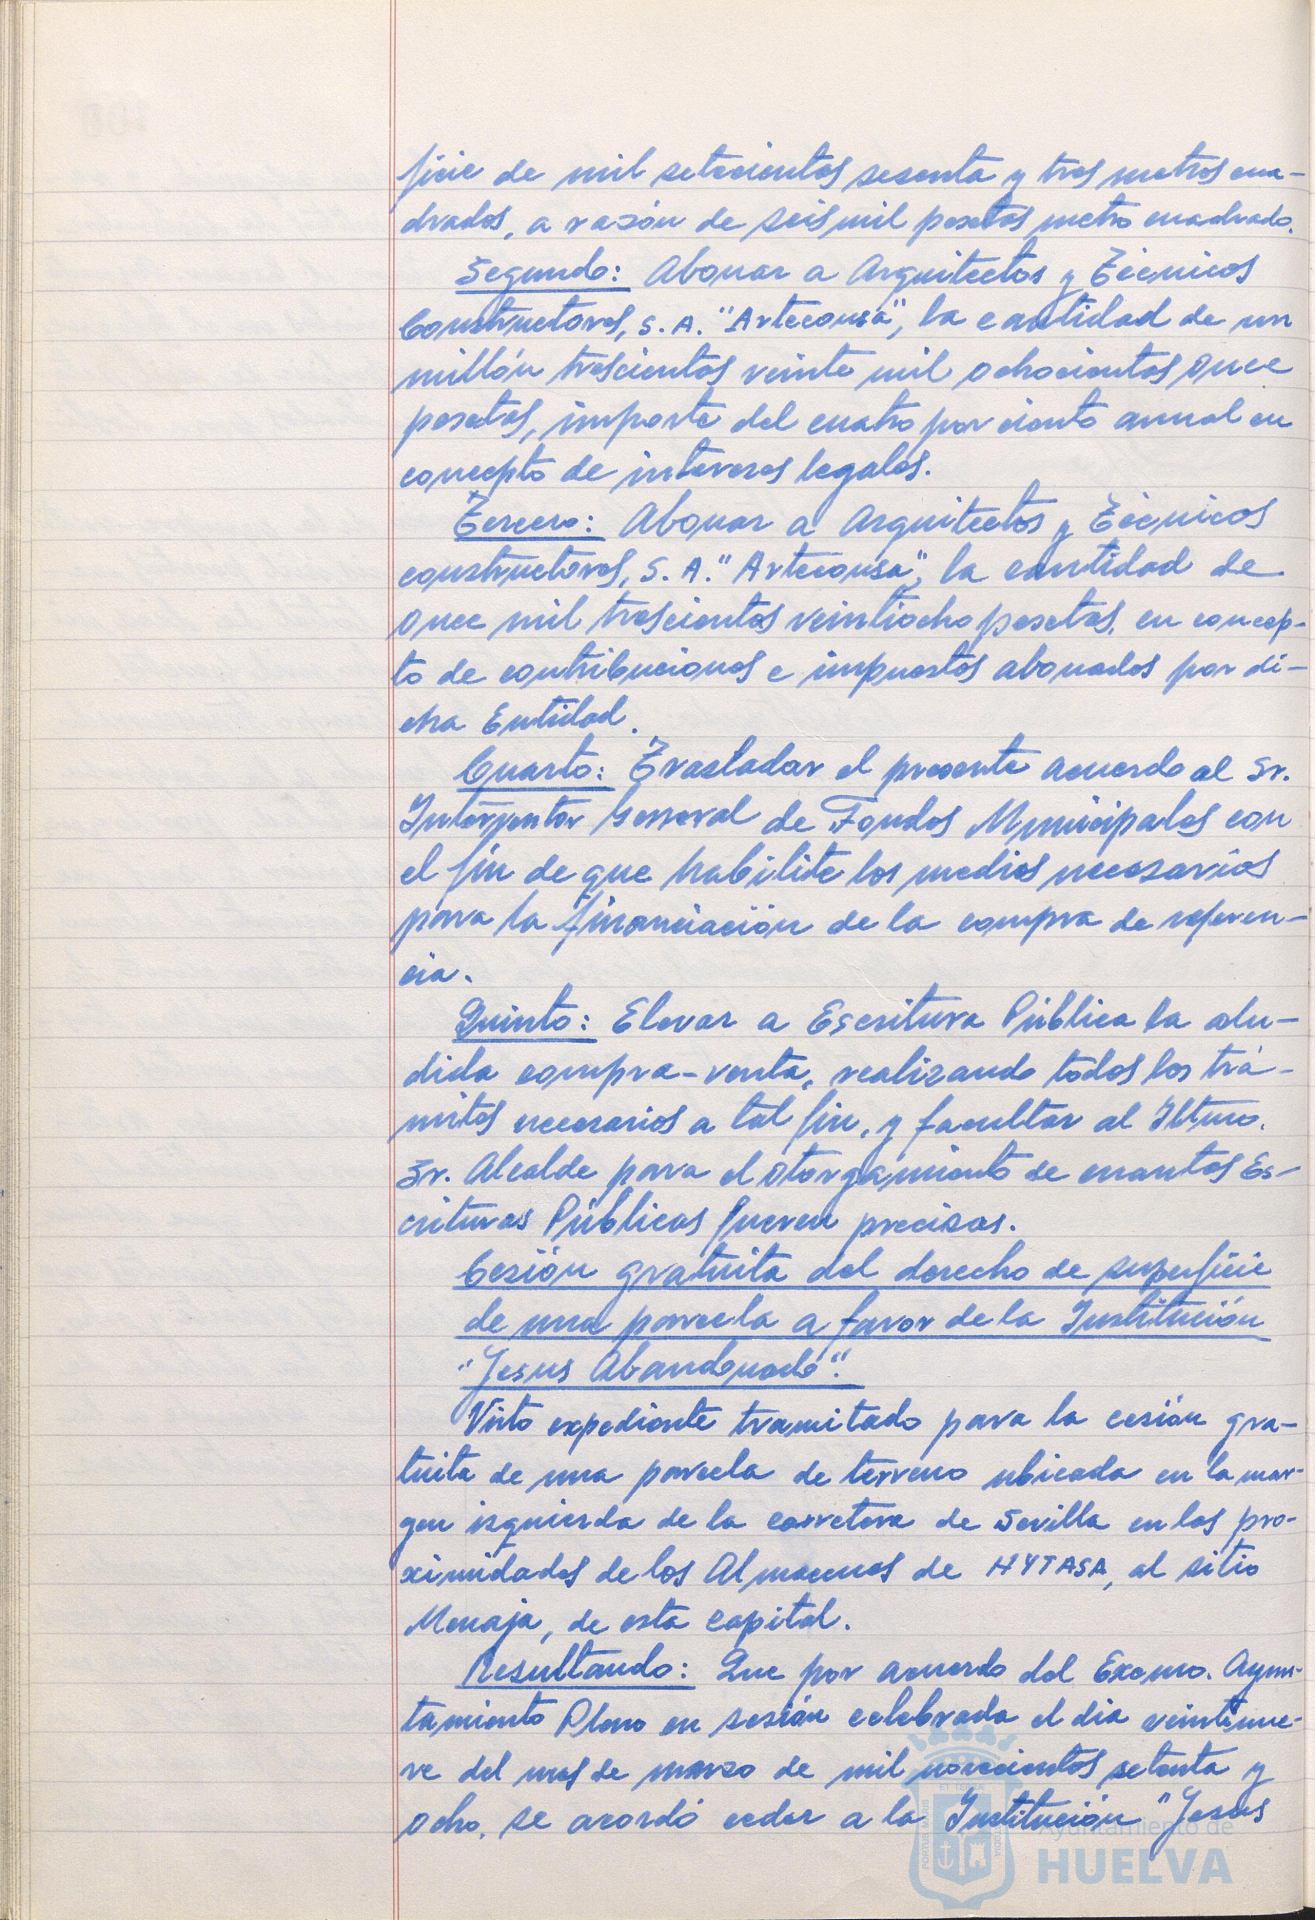 ficie de mil setecientos sesenta y tres metros cua-
drados, a razón de seis mil pesetas metro cuadrado.
Segundo: Abonar a Arquitectos y Técnicos
Constructores, S. A. "Artecousa", la cantidad de un
millón trescientos veinte mil ochocientos once
pesetas, importe del cuatro por ciento anual en
concepto de intereses legales.
Tercero: Abonar a Arquitectos y Técnicos
constructores, S. A. "Artecousa", la cantidad de
once mil trescientos veintiocho pesetas, en concep-
to de contribuciones e impuestos abonados por di-
cha Entidad.
Cuarto: Trasladar el presente acuerdo al Sr.
Interventor General de Fondos Municipales con
el fin de que habilite los medios necesarios
para la financiación de la compra de referen-
cia.
Quinto: Elevar a Escritura Pública la alu-
dida compra-venta, realizando todos los trá-
mites necesarios a tal fin, y facultar al Iltmo.
Sr. Alcalde para el otorgamiento de cuantas Es-
crituras Públicas fueren precisas.
Cesión gratuita del derecho de superficie
de una parcela a favor de la Institución
"Jesus Abandonado".
Visto expediente tramitado para la cesión gra-
tuita de una parcela de terreno ubicada en la mar-
gen izquierda de la carretera de Sevilla en las pro-
ximidades de los Almacenes de HYTASA, al sitio
Menaja, de esta capital.
Resultando: Que por acuerdo del Excmo. Ayun-
tamiento Pleno en sesión celebrada el dia veintinue-
ve del mes de marzo de mil novecientos setenta y
ocho, se acordó ceder a la Institución "Jesus
Ayuntamiento de
HUELVA